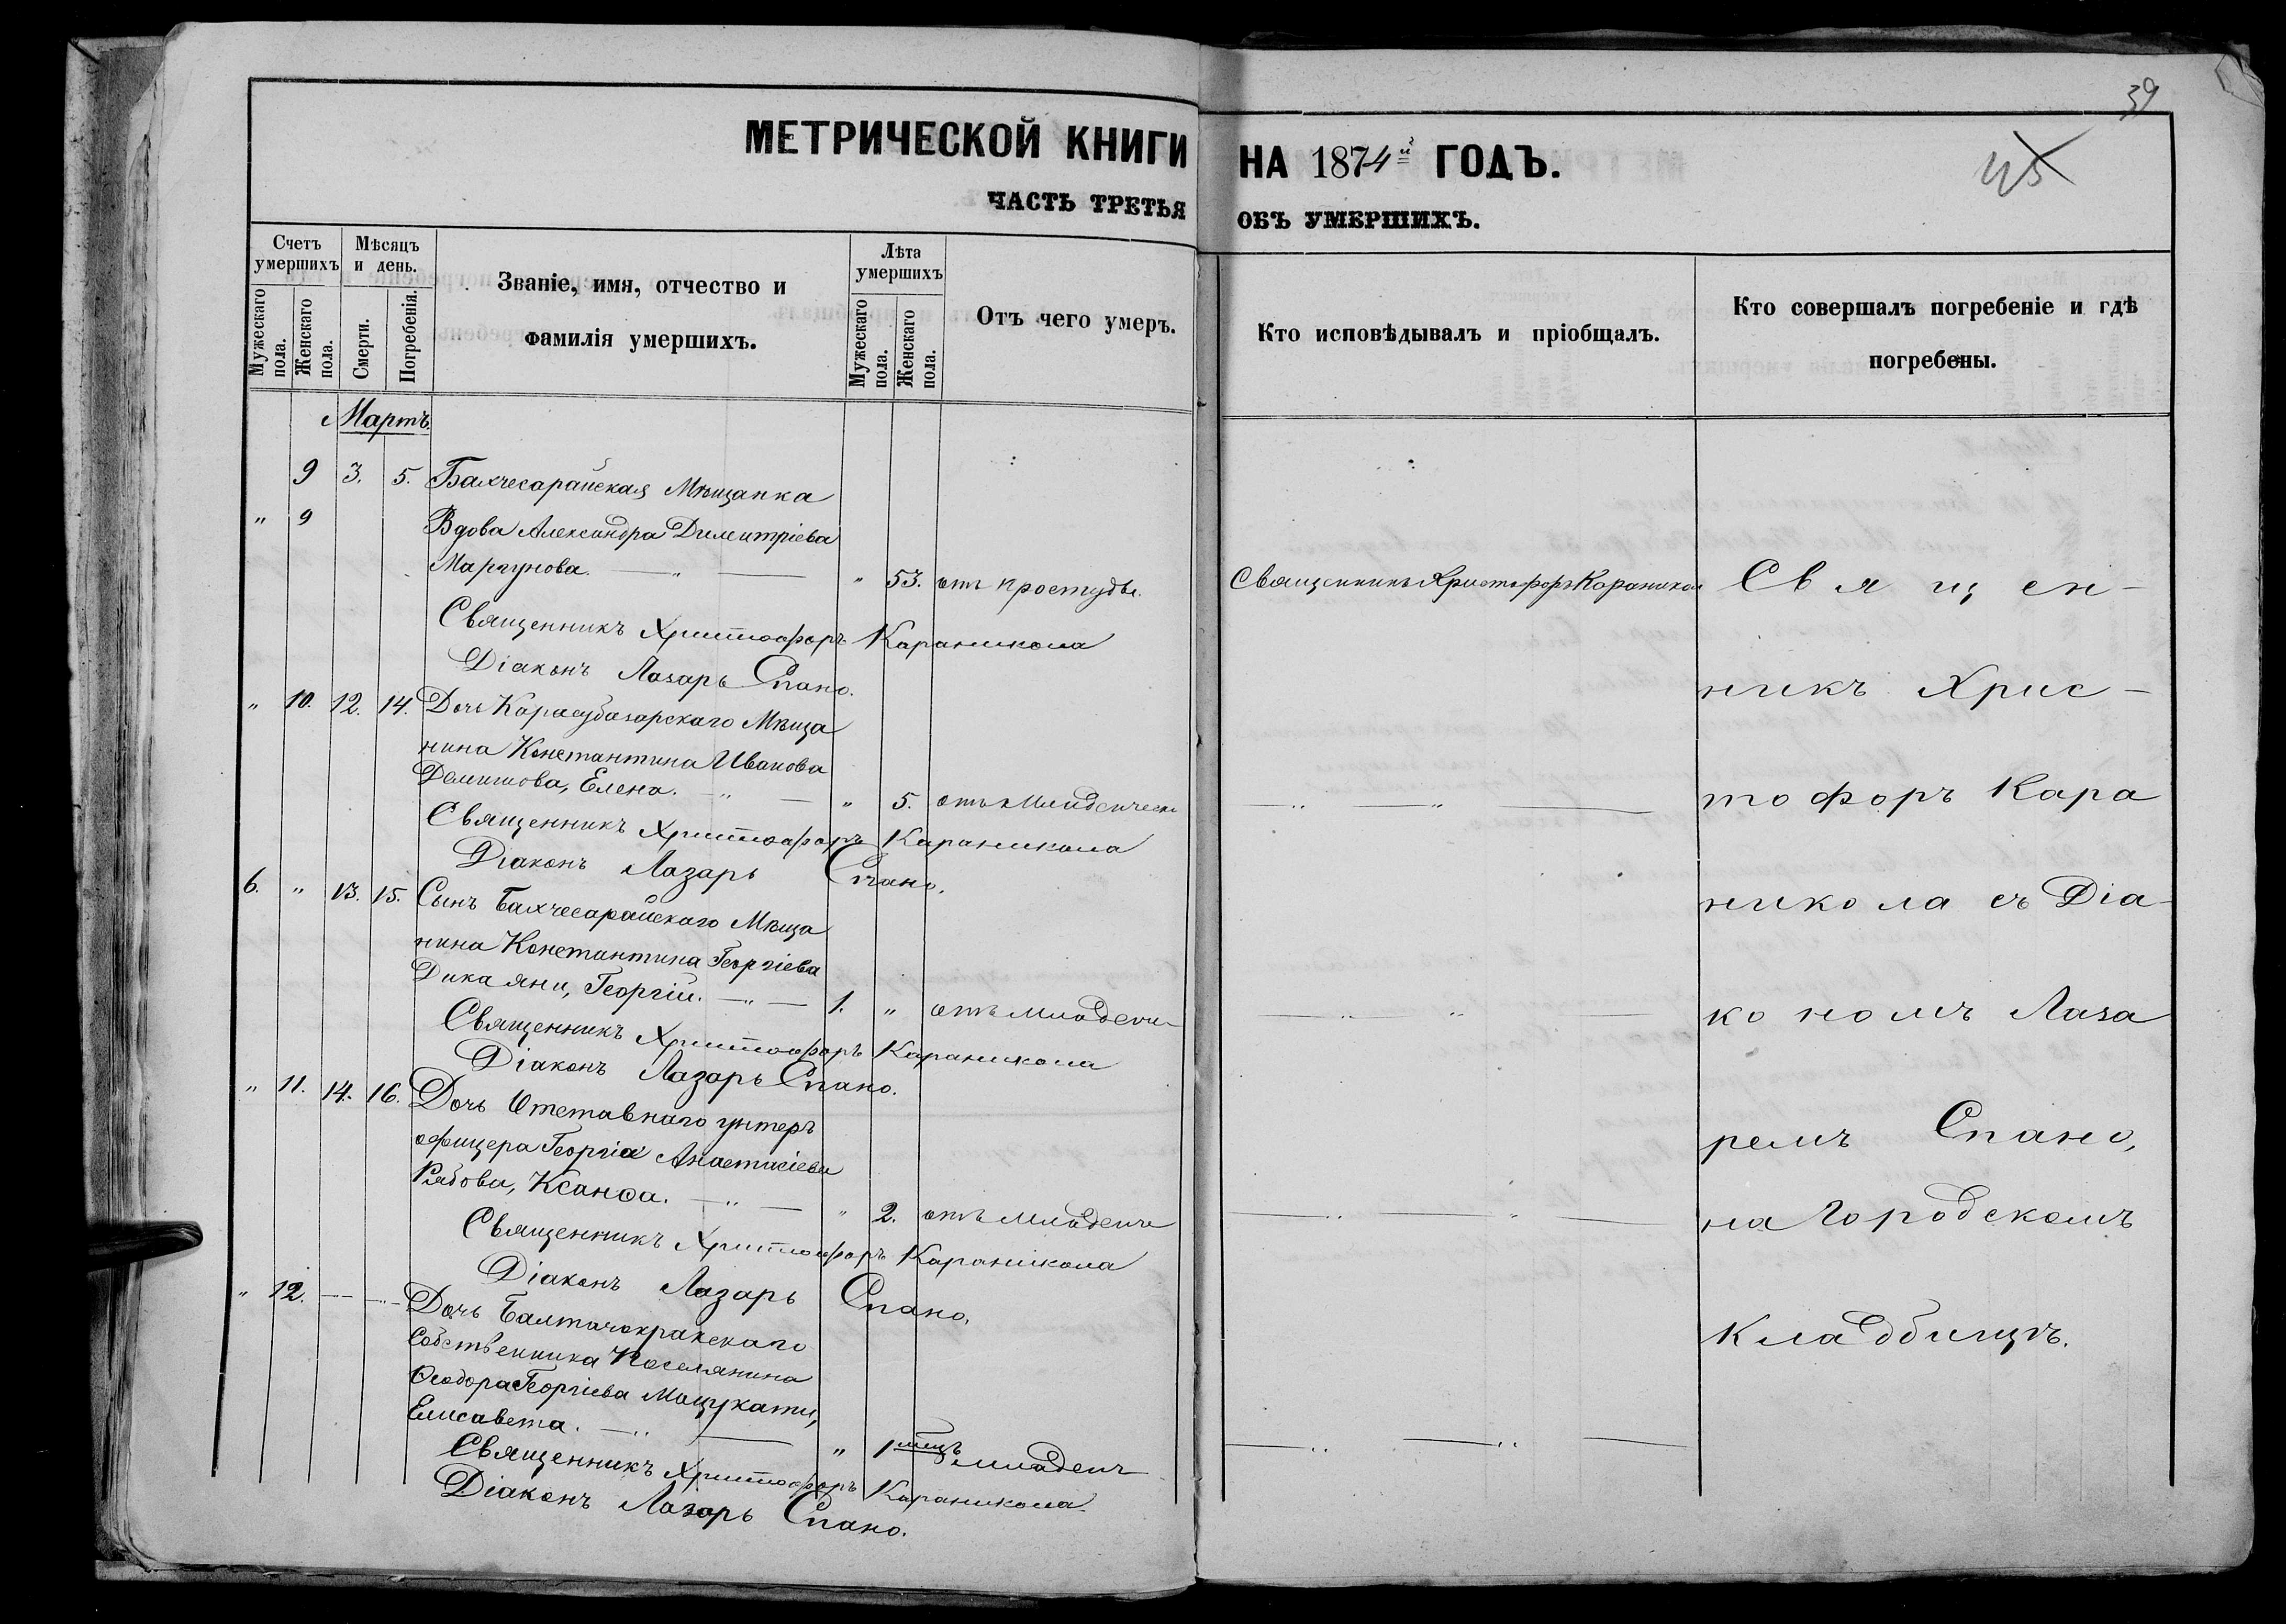 39
45
МЕТРИЧЕСКОЙ КНИГИ НА 1874й ГОДЪ.
ЧАСТЬ ТРЕТЬЯ ОБЪ УМЕРШИХЪ.
Счетъ умершихъ
Мужескаго пола.
Женскаго пола.
Мѣсяцъ и день.
Смерти.
Погребенія.
Званіе, имя, отчество и
фамилія умершихъ.
Лѣта умершихъ
Мужескаго пола.
Женскаго пола.
Отъ чего умеръ.
Кто исповѣдывалъ и пріобщалъ.
Кто совершалъ погребеніе и гдѣ
погребены.
Мартъ.
9 3. 5. Бахчесарайская Мѣщанка
" 9 Вдова Александра Димитріева
Маргунова. — " — " 53. отъ простуды.
Священникъ Христофоръ Караникола
Діаконъ Лазарь Спано.
" 10. 12. 14. Дочь Карасубазарскаго Мѣща
нина Константина Иванова
Елена. — " — " 5. отъ младенческ
Священникъ Христофоръ Караникола
Діаконъ Лазарь Спано.
6. " 13. 15. Сынъ Бахчесарайскаго Мѣща
нина Константина Георгіева
Дикаяни, Георгій. — " — 1. " отъ младенч
Священникъ Христофоръ Караникола
Діаконъ Лазарь Спано.
" 11. 14. 16. Дочь Отставнаго унтеръ
офицера Георгія Анастасіева
Рябова, Ксанѳа. — " — " 2. отъ младенч
Священникъ Христофоръ Караникола
Діаконъ Лазарь Спано.
" 12. — — Дочь Балтачокракскаго
Собственника Поселянина
Ѳеодора Георгіева Мацукати,
Елисавета. — " — " 1 мѣцъ младенч
Священникъ Христофоръ Караникола
Діаконъ Лазарь Спано.
Священникъ Христофоръ Караникол
— " — " —
— " — " —
— " — " —
— " — " —
Свящ ен-
никъ Хрис-
тофоръ Кара
никола съ Діа-
кономъ Лаза
ремъ Спано,
на Городскомъ
кладбищѣ.